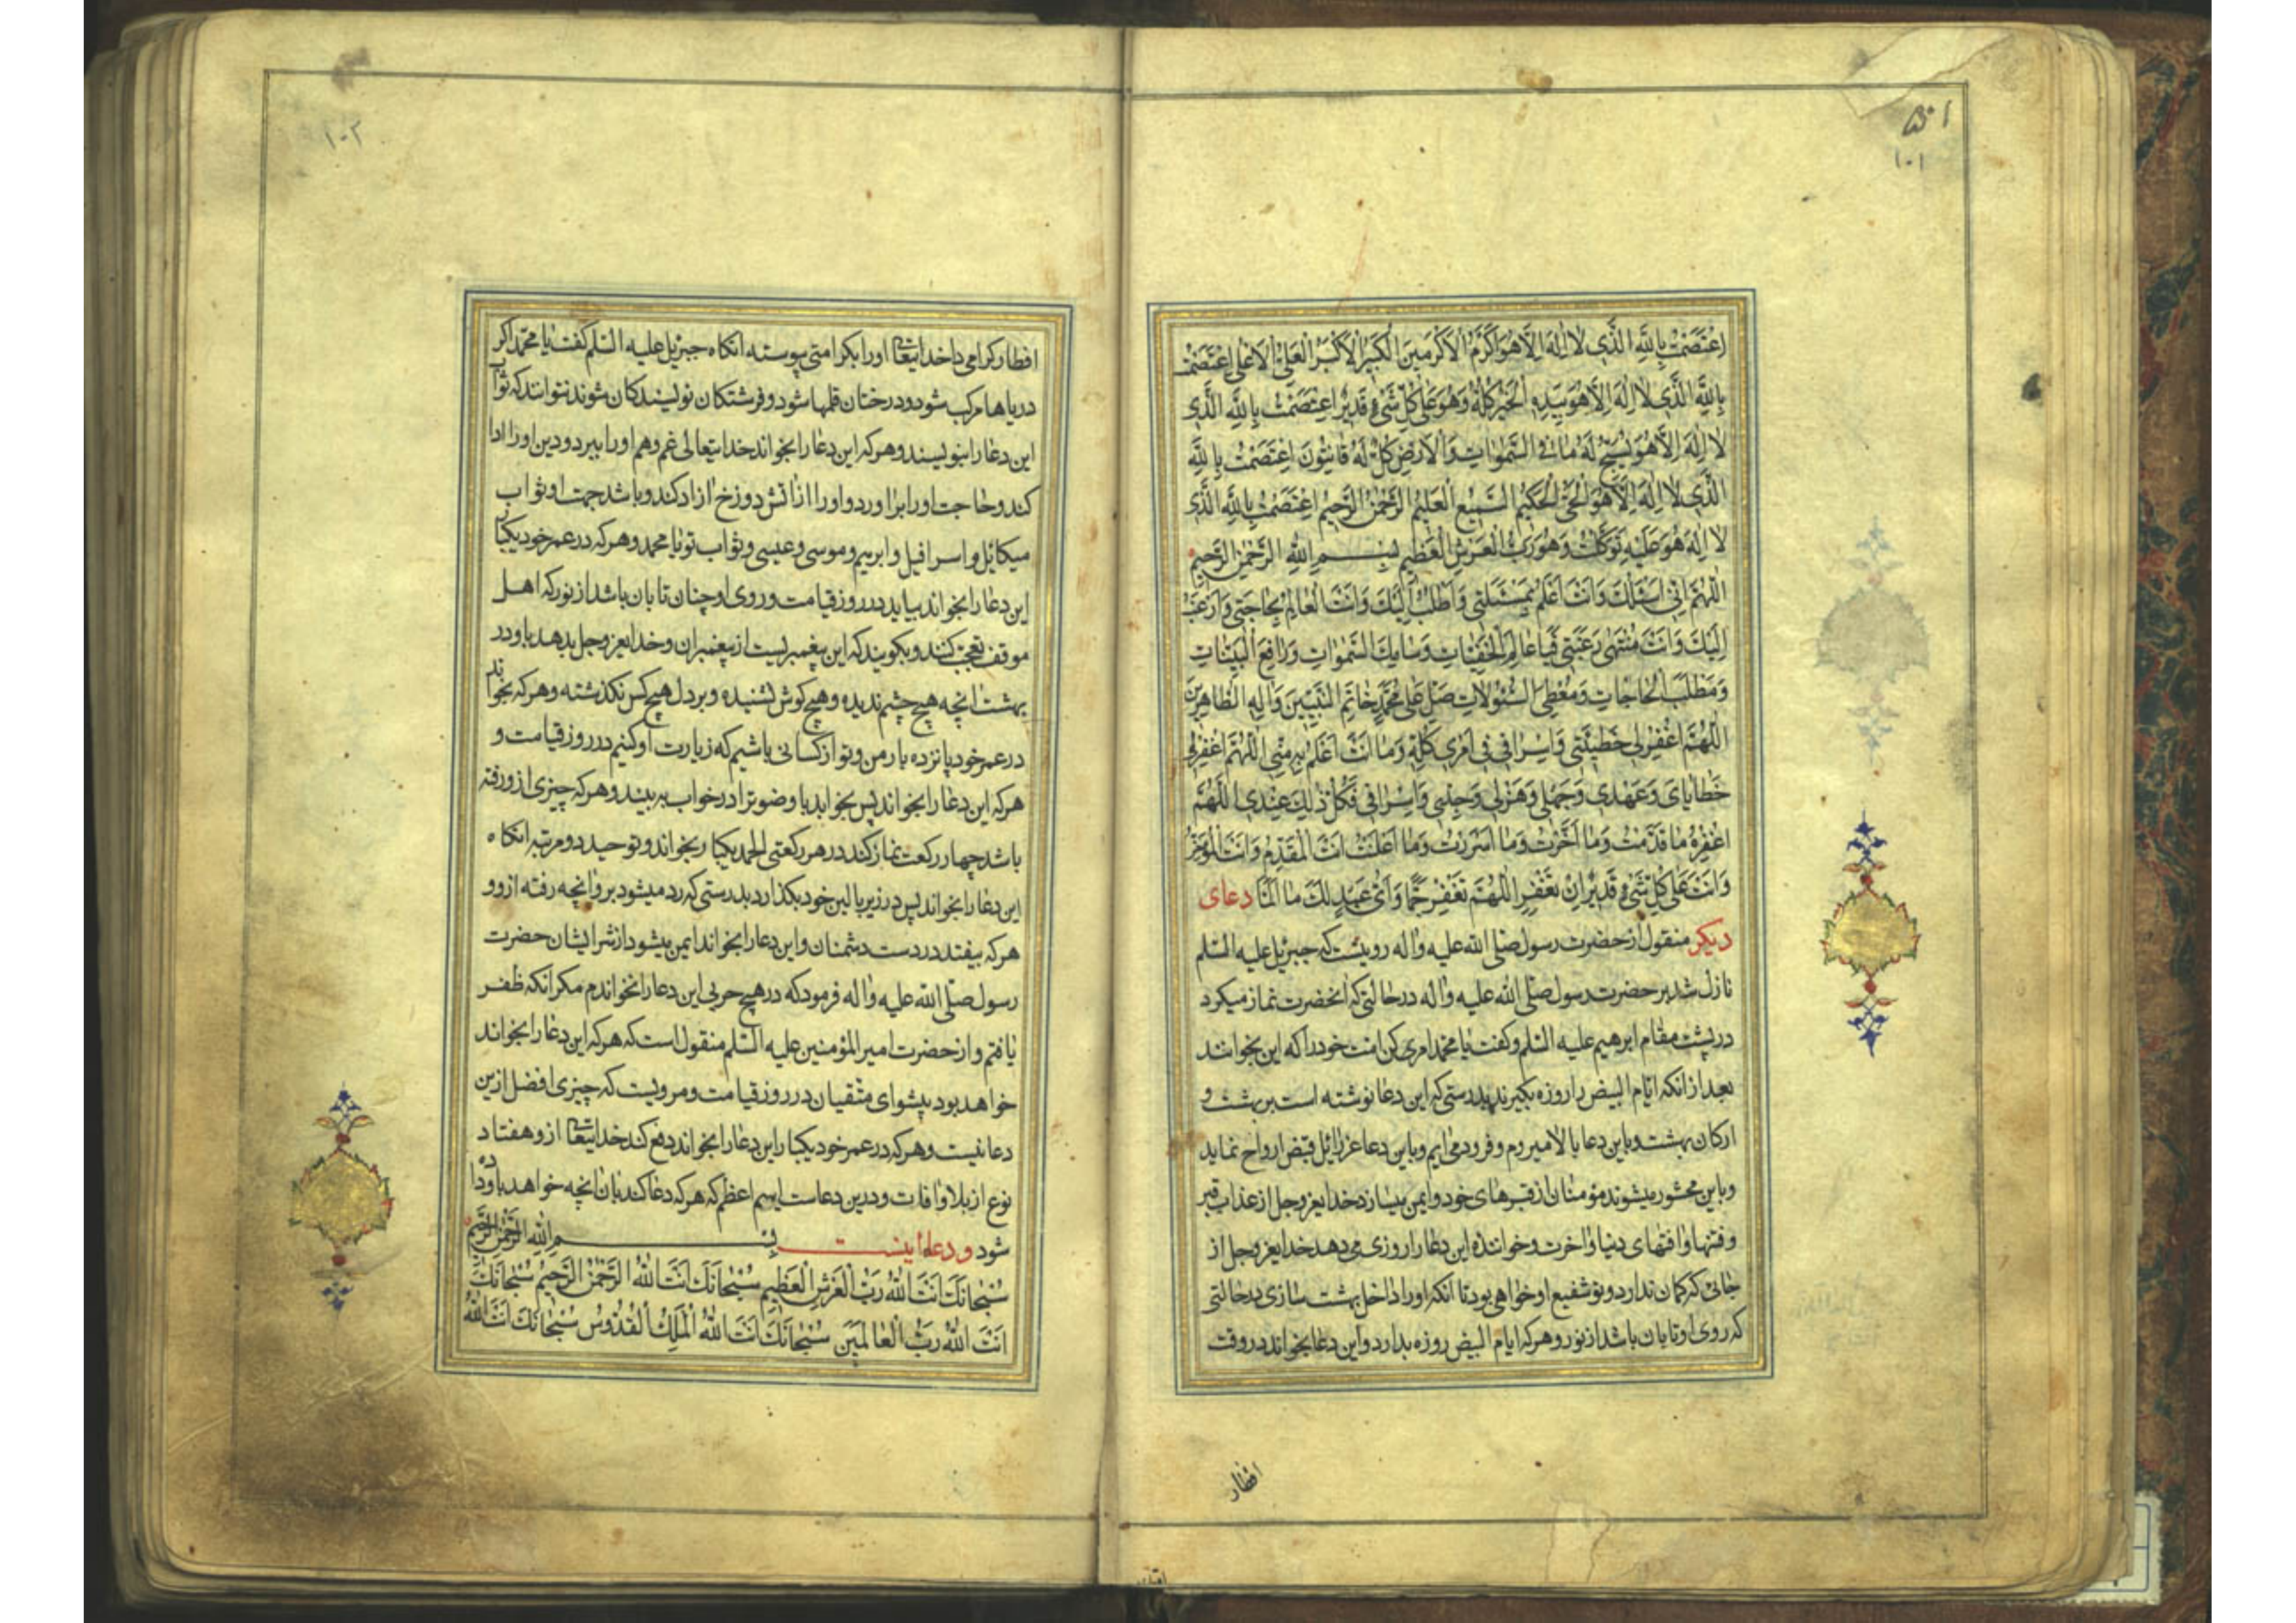 ۱۰۱
اِعْتَصَمْتُ بِاللّٰهِ الَّذِی لٰا اِلٰهَ اِلَّا هُوَ اَكْرَمُ الْاَكْرَمِینَ الْكَبِیرُ الْاَكْبَرُ الْعَلِیُّ الْاَعْلٰی اِعْتَصَمْتُ
بِاللّٰهِ الَّذِی لٰا اِلٰهَ اِلَّا هُوَ بِیَدِهِ الْخَیْرُ كُلُّهُ وَهُوَ عَلٰی كُلِّ شَیْءٍ قَدِیرٌ اِعْتَصَمْتُ بِاللّٰهِ الَّذِی
لٰا اِلٰهَ اِلَّا هُوَ یُسَبِّحُ لَهُ مٰا فِی السَّمٰوٰاتِ وَالْاَرْضِ كُلٌّ لَهُ قٰانِتُونَ اِعْتَصَمْتُ بِاللّٰهِ
الَّذِی لٰا اِلٰهَ اِلَّا هُوَ الْحَیُّ الْحَكِیمُ السَّمِیعُ الْعَلِیمُ الرَّحْمٰنُ الرَّحِیمُ اِعْتَصَمْتُ بِاللّٰهِ الَّذِی
لٰا اِلٰهَ هُوَ عَلَیْهِ تَوَكَّلْتُ وَهُوَ رَبُّ الْعَرْشِ الْعَظِیمِ بِسْمِ اللّٰهِ الرَّحْمٰنِ الرَّحِیمِ
اَللّٰهُمَّ اِنِّی اَسْئَلُكَ وَاَنْتَ اَعْلَمُ بِمَسْئَلَتِی وَاَطْلُبُ اِلَیْكَ وَاَنْتَ الْعٰالِمُ بِحٰاجَتِی وَاَرْغَبُ
اِلَیْكَ وَاَنْتَ مُنْتَهٰی رَغْبَتِی فَیٰا عٰالِمَ الْخَفِیّٰاتِ وَسٰامِكَ السَّمٰوٰاتِ وَرٰافِعَ الْبَیِّنٰاتِ
وَمَطْلَبَ الْحٰاجٰاتِ وَمُعْطِیَ السُّئُولٰاتِ صَلِّ عَلٰی مُحَمَّدٍ خٰاتِمِ النَّبِیِّینَ وَاٰلِهِ الطّٰاهِرِینَ
اَللّٰهُمَّ اغْفِرْ لِی خَطِیئَتِی وَاِسْرٰافِی فِی اَمْرِی كُلِّهِ وَمٰا اَنْتَ اَعْلَمُ بِهِ مِنِّی اَللّٰهُمَّ اغْفِرْ لِی
خَطٰایٰایَ وَعَهْدِی وَجَهْلِی وَهَزْلِی وَجِدِّی وَاِسْرٰافِی فَكُلُّ ذٰلِكَ عِنْدِی اَللّٰهُمَّ
اغْفِرْهُ مٰا قَدَّمْتُ وَمٰا اَخَّرْتُ وَمٰا اَسْرَرْتُ وَمٰا اَعْلَنْتُ اَنْتَ الْمُقَدِّمُ وَاَنْتَ الْمُؤَخِّرُ
وَاَنْتَ عَلٰی كُلِّ شَیْءٍ قَدِیرٌ اِنْ تَغْفِرِ اللّٰهُمَّ تَغْفِرْ جَمًّا وَاَیُّ عَبْدٍ لَكَ مٰا اَلَمّٰا دعای
دیكر منقول از حضرت رسول صلّی اللّه علیه واله رویست كه جبرئیل علیه السّلم
نازل شد بر حضرت رسول صلّی اللّه علیه واله در حالتی كه انحضرت نماز میكرد
در پشت مقام ابرهیم علیه السّلم وكفت یا محمد امری كن امّت خودرا كه این بخوانند
بعد از انكه ایّام البیض را روزه بكیرند بدرستی كه این دعا نوشته است بر بهشت و
اركان بهشت وباین دعا بالا میروم وفرود می ایم وباین دعا عزرائیل قبض ارواح نماید
وباین محشور میشوند مؤمنان از قبرهای خود وایمن میسازد خدایعزوجل از عذاب قبر
وفتنها وافتهای دنیا واخرت وخواننده این دعا را روزی می دهد خدایعزوجل از
جائی كه كمان ندارد وتو شفیع او خواهی بود تا انكه اورا داخل بهشت سازی در حالتی
كه روی او تابان باشد از نور وهر كه ایام البیض روزه بدارد واین دعا بخواند در وقت
افطار
۱۰۲
افطار كرامی دا خدایتعالی اورا بكرامتی پیوسته انكاه جبرئیل علیه السّلم كفت یا محمّد اكر
دریاها مركب شود ودرختان قلمها شود وفرشتكان نویسندكان شوند نتوانند كه ثواب
این دعا را بنویسند وهر كه این دعا را بخواند خدایتعالی غم وهم اورا ببرد ودین اورا ادا
كند وحاجت اورا براورد واورا از اتش دوزخ ازاد كند وباشد جهت او ثواب
میكائیل واسرافیل وابرهیم وموسی وعیسی وثواب تو یا محمد وهر كه در عمر خود یكبار
این دعا را بخواند بیاید در روز قیامت وروی او چنان تابان باشد از نور كه اهل
موقف تعجب كنند وبكویند كه این پیغمبریست از پیغمبران وخدایعزوجل بدهد باو در
بهشت انچه هیچ چشم ندیده وهیچ كوش نشنیده وبر دل هیچ كس نكذشته وهر كه بخواند
در عمر خود پانزده بار من وتو از كسانی باشیم كه زیارت او كنیم در روز قیامت و
هر كه این دعا را بخواند پس بخوابد با وضو ترا در خواب به بیند وهر كه چیزی از ورفته
باشد چهار ركعت نماز كند در هر ركعتی الحمد یكبار بخواند وتوحید دو مرتبه انكاه
این دعا را بخواند پس در زیر بالین خود بكذارد بدرستی كه رد میشود برو انچه رفته ازو و
هر كه بیفتد در دست دشمنان واین دعا را بخواند ایمن میشود از شر ایشان حضرت
رسول صلّی اللّه علیه واله فرمود كه در هیچ حربی این دعا را نخواندم مكر انكه ظفر
یافتم واز حضرت امیر المؤمنین علیه السّلم منقول است كه هر كه این دعا را بخواند
خواهد بود پیشوای متّقیان در روز قیامت ومرویست كه چیزی افضل ازین
دعا نیست وهر كه در عمر خود یكبار این دعا را بخواند دفع كند خدایتعالی ازو هفتاد
نوع از بلا وافات ودرین دعاست اسم اعظم كه هر كه دعا كند بان انچه خواهد باو داده
شود ودعا اینست بِسْمِ اللّٰهِ الرَّحْمٰنِ الرَّحِیمِ
سُبْحٰانَكَ اَنْتَ اللّٰهُ رَبُّ الْعَرْشِ الْعَظِیمِ سُبْحٰانَكَ اَنْتَ اللّٰهُ الرَّحْمٰنُ الرَّحِیمُ سُبْحٰانَكَ
اَنْتَ اللّٰهُ رَبُّ الْعٰالَمِینَ سُبْحٰانَكَ اَنْتَ اللّٰهُ الْمَلِكُ الْقُدُّوسُ سُبْحٰانَكَ اَنْتَ اللّٰهُ